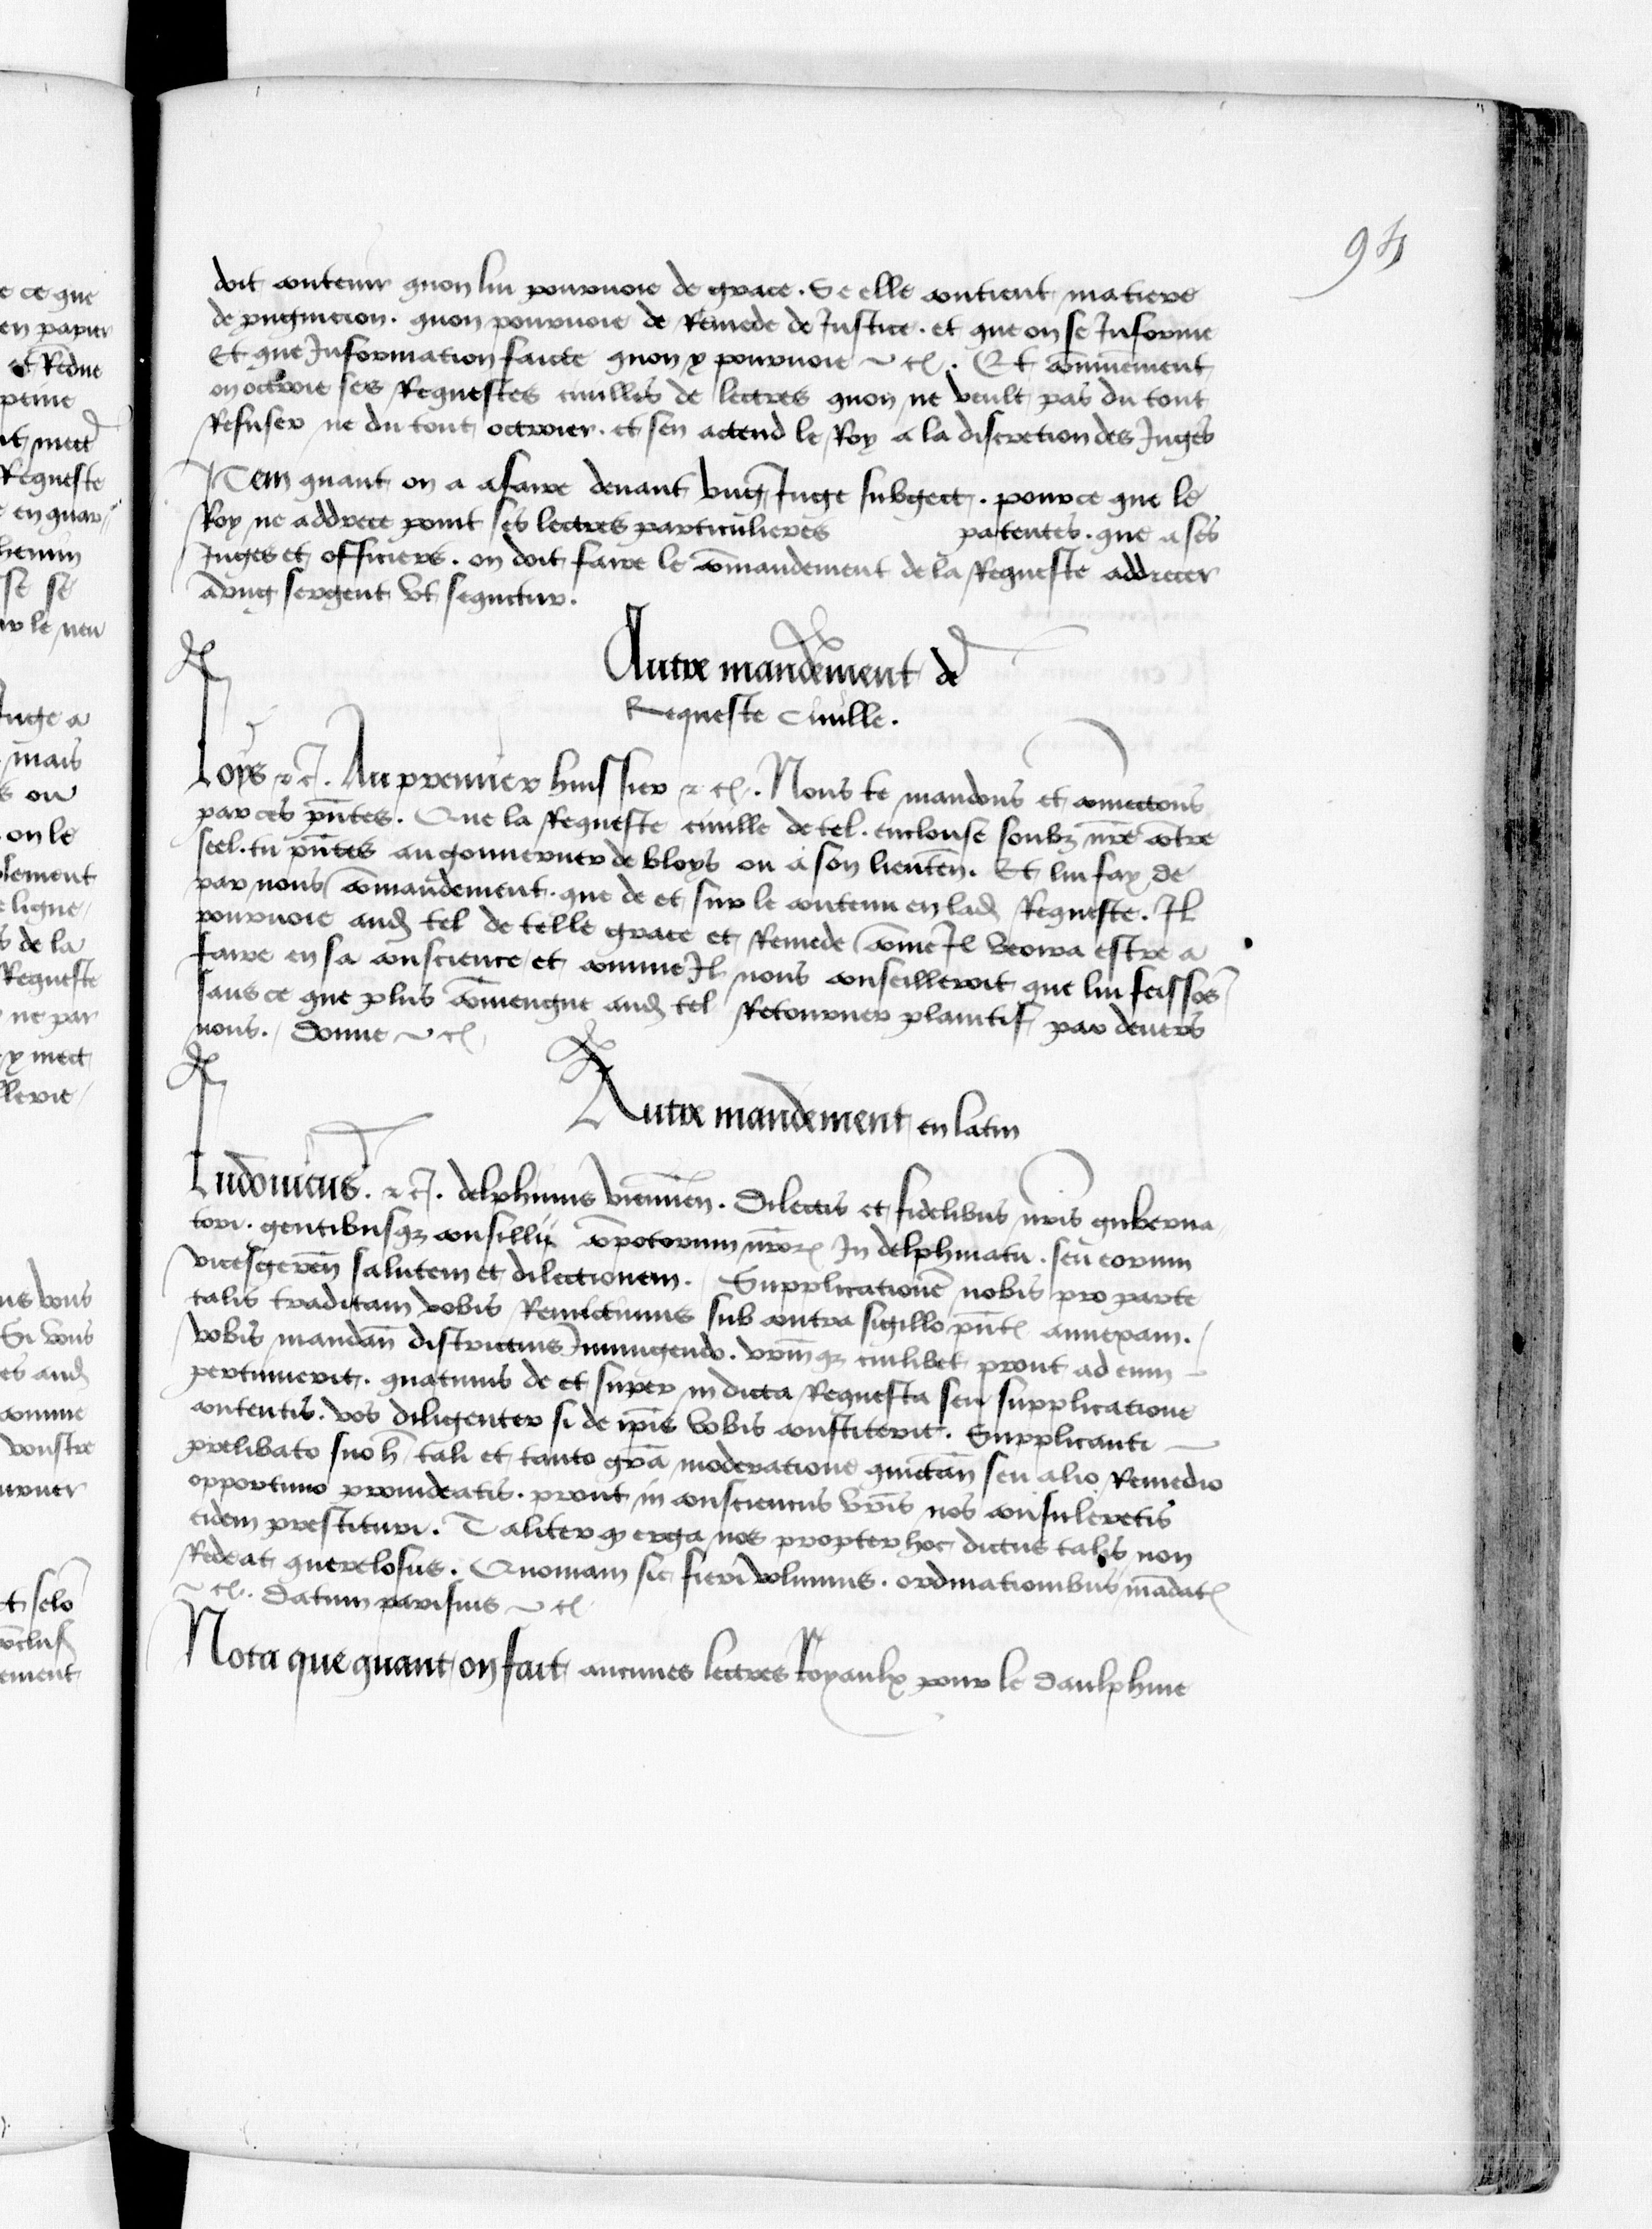 94
doit contenir quon lui pourvoie de grace. Se elle contient matiere
de pugnicion. quon pourvoie de Remede de Justice. et que on se Informe
Et que Information faicte quon y pourvoie ~ etc. Et cōmunement
on octroie ses Requestes civilles de lectres quon ne veult pas du tout
Refuser ne du tout octroier. et sen actend le Roy a la discretion des Juges
ITem quant on a afaire devant ung Juge subgect. pource que le
Roy ne addrece point ses lectres particulieres patentes. que a ses
Juges et officiers. on doit faire le cōmandement de la Requeste addrecer
a ung sergent ut sequitur.
Autre mandement de
Requeste Civille.
Loys etc. Au premier huissier etc. Nous te mandons et cōmectons
par ces pn̄tes. Que la Requeste civille de tel. enclouse soubz nr̄e contre
seel. tu pn̄tes au gouverner de bloys ou a son lieuten̄. Et lui fay de
par nous cōmandement. que de et sur le contenu en lad Requeste. Il
pourvoie aud tel de telle grace et Remede cōme Il verra estre a
faire en sa conscience et comme Il nous conseilleroit que lui feissōs
sans ce que plus cōmengne aud tel Retourner plaintif par devers
nous. Donne ~ etc
Autre mandement en latin
Ludovicus. etc. delphinus viennen̄. Dilectis et fidelibus nr̄is guberna
tori. gentibusqz consillii cōpotorum nr̄orꝝ In delphinatu. seu eorum
vicesgeren̄ salutem et dilectionem. Supplicationē nobis pro parte
talis traditam vobis Remictimus sub contra sigillo pn̄tꝭ annexam.
vobis mandan̄ districtius Iniungendo. vr̄mqz cuilibet prout ad eum
pertinuerit. quatinus de et super in dicta Requesta seu supplicatione
contentis. vos diligenter si de ip̄is vobis constiterit. Supplicanti
prelibato suo h tali et tanto gr̄a moderatione quictan̄ seu alio Remedio
opportuno provideatis. prout in consciencus vr̄is nos consuleretis
eidem prestituri. Taliter qꝫ erga nos propter hoc dictus talis non
Redeat querelosus. Quoniam sic fieri volumus. ordinationibus mādatꝭ
~ etc. Datum parisius ~ etc
Nota que quant on fait aucunes lectres Royaulx pour le daulphine